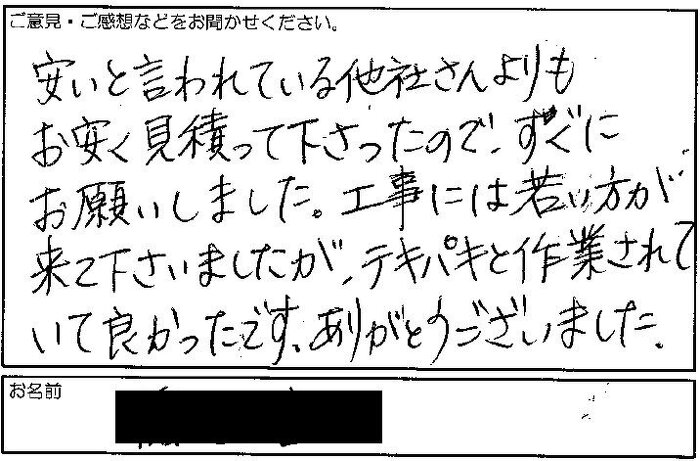 ご意見・ご感想などをお聞かせください。
安いと言われている他社さんよりも
お安く見積って下さったので、すぐに
お願いしました。工事には若い方が
来て下さいましたが、テキパキと作業されて
いて良かったです、ありがとうございました。
お名前